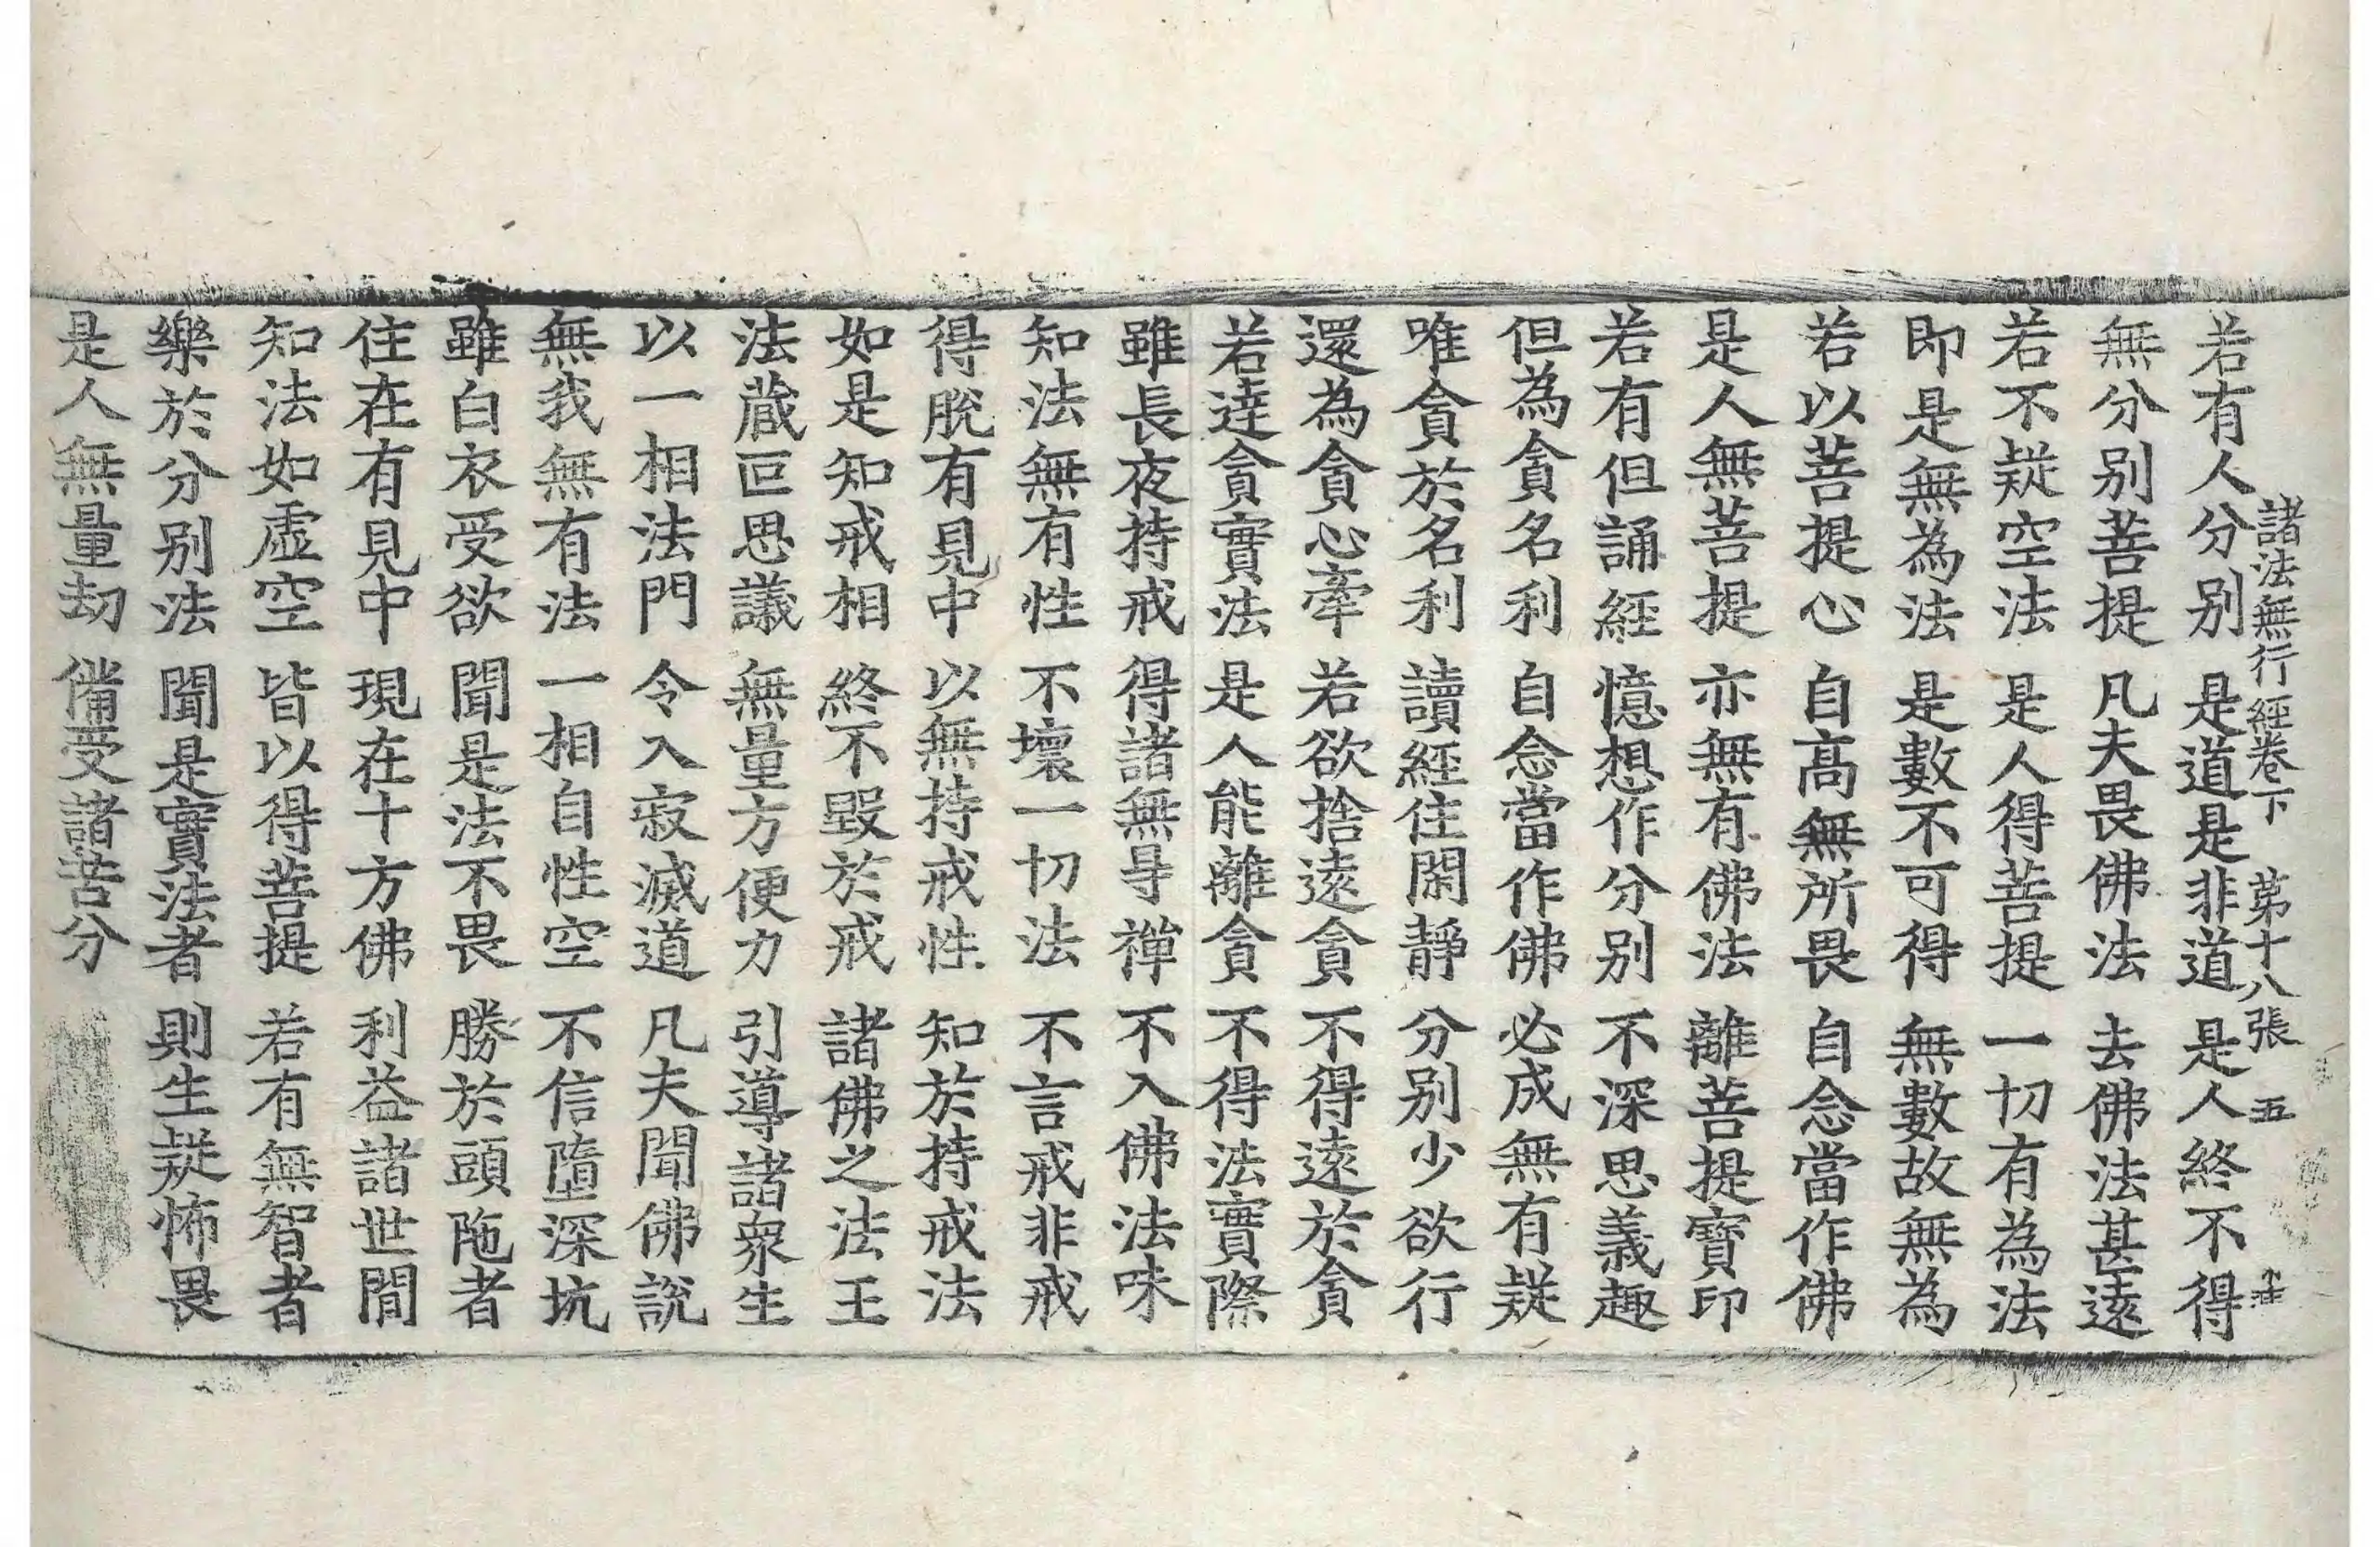 諸法無行經卷下　第十八張　五
若有人分別　是道是非道　是人終不得
無分別菩提　凡夫畏佛法　去佛法甚遠
若不疑空法　是人得菩提　一切有為法
即是無為法　是數不可得　無數故無為
若以菩提心　自高無所畏　自念當作佛
是人無菩提　亦無有佛法　離菩提寶印
若有但誦經　憶想作分別　不深思義趣
但為貪名利　自念當作佛　必成無有疑
唯貪於名利　讀經住閑靜　分別少欲行
還為貪心牽　若欲捨遠貪　不得遠於貪
若達貪實法　是人能離貪　不得法實際
雖長夜持戒　得諸無㝵禪　不入佛法味
知法無有性　不壞一切法　不言戒非戒
得脫有見中　以無持戒性　知於持戒法
如是知戒相　終不毀於戒　諸佛之法王
法藏叵思議　無量方便力　引導諸眾生
以一相法門　令入寂滅道　凡夫聞佛說
無我無有法　一相自性空　不信墮深坑
雖白衣受欲　聞是法不畏　勝於頭陁者
住在有見中　現在十方佛　利益諸世間
知法如虛空　皆以得菩提　若有無智者
樂於分別法　聞是實法者　則生疑怖畏
是人無量劫　備受諸苦分